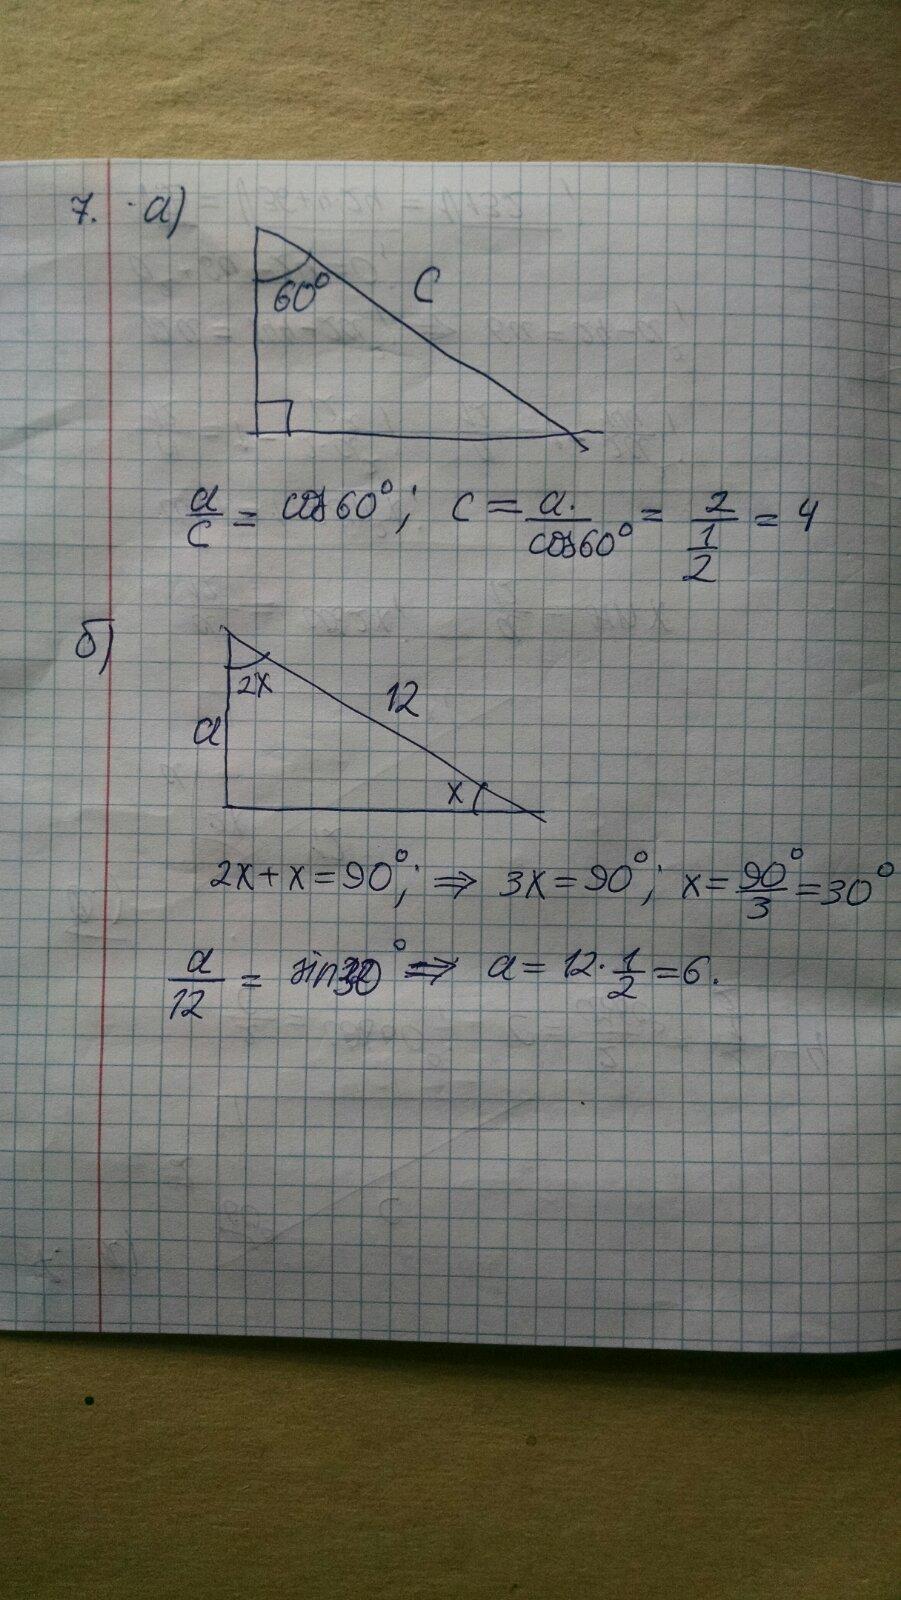 7. а)
60° c
a/c = cos60°; c = a/cos60° = 2/(1/2) = 4
б)
2x 12
a
x
2x + x = 90°; ⇒ 3x = 90°; x = 90°/3 = 30°
a/12 = sin30° ⇒ a = 12 · 1/2 = 6.